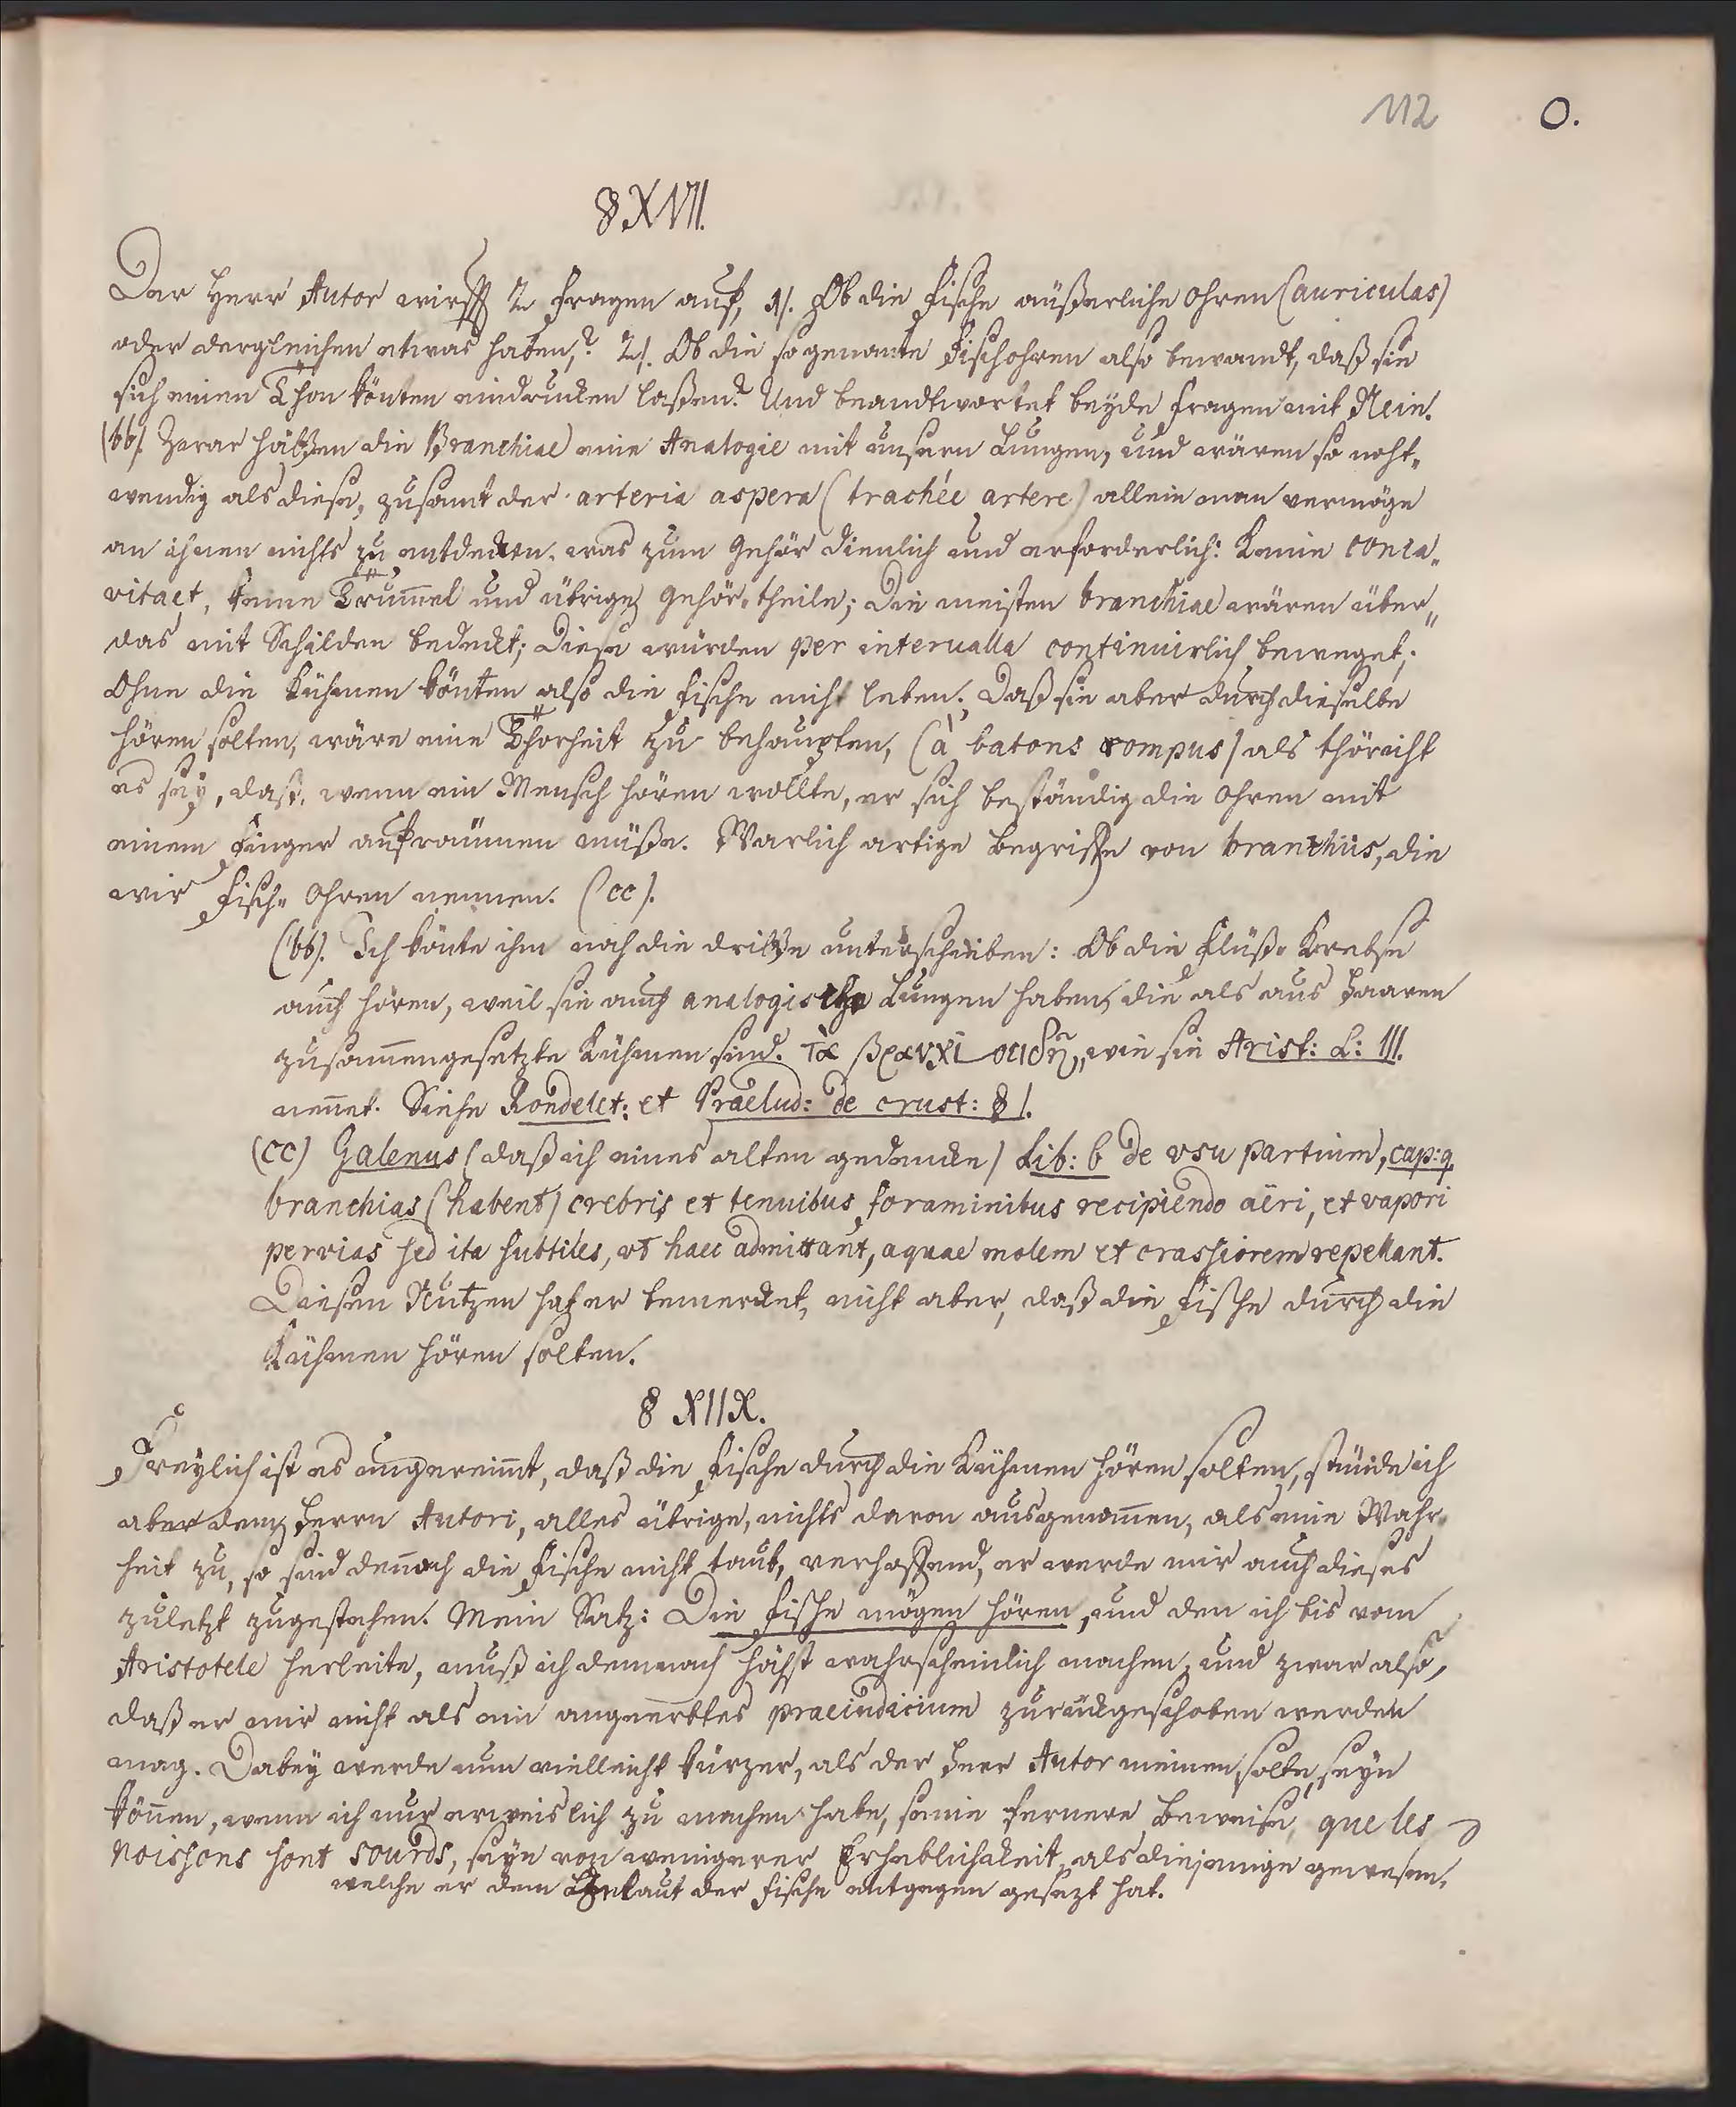 112 O.
§ XVII.
Der Herr Autor wirfft 2 Fragen auf, 1). Ob die Fische äußerliche Ohren (auriculas)
oder dergleichen etwas haben,? 2). Ob die sogenante Fischohren also bewandt, daß sie
sich einen Thon könten eindrucken laßen? Und beandtwortet beyde Fragen mit Nein.
(bb). Zwar hätten die Branchiae eine Analogie mit unsern Lungen, und wären so noht„
wendig als diese, zusamt der arteria aspera (trachée artere) allein man vermöge
an ihnen nichts zu entdecken, was zum Gehör dienlich und erforderlich: Keine conca„
vitaet, keine Trum̅el und übrige Gehör-theile; Die meisten branchiae wären über„
das mit Schilden bedeckt; Diese würden per interualla continuirlich beweget;
Ohne die Kühmen könten also die Fische nicht leben; Daß sie aber durch dieselbe
hören solten, wäre eine Thorheit zu behaupten, (à batons rompus) als thöricht
es sey, daß, wenn ein Mensch hören wollte, er sich beständig die Ohren mit
einem Finger aufraümen müße. Warlich artige Begriffe von branchiis, die
wir Fisch-Ohren nennen. (cc).
(bb). Ich könte ihm noch die dritte unterschieben: Ob die Fluß-Krebse
auch hören, weil sie auch analogische Lungen haben, die als aus Haaren
zusam̅engesetzte Kühmen sind. τὰ βραγχιοειδῆ, wie sie Arist: L: III.
nen̅et. Siehe Rondelet: et Praelud: de crust: § 1.
(cc) Galenus (daß ich eines alten gedencke) Lib: 6 de vsu partium, cap: 9.
branchias (habent) crebris et tenuibus foraminibus recipiendo aëri, et vapori
pervias sed ita subtiles, vt haec admittant, aquae molem et crassiorem repellant.
Diesen Nutzen hat er bemercket, nicht aber, daß die Fische durch die
Kühmen hören solten.
§ XIIX.
Freylich ist es ungereim̅t, daß die Fische durch die Kühmen hören solten, stünde ich
aber dem Herrn Autori, alles übrige, nichts davon ausgenom̅en, als eine Wahr-
heit zu, so sind den̅och die Fische nicht taub, verhoffend, er werde mir auch dieses
zuletzt zugestehen. Mein Satz: Die Fische mögen hören, und den ich bis vom
Aristotele herleite, muß ich demnach höchst wahrscheinlich machen, und zwar also,
daß er mir nicht als ein angeerbtes praeiudicium zurückgeschoben werden
mag. Dabey werde nun vielleicht kürzer, als der Herr Autor meinen solte, seyn
kön̅en, wenn ich nur erweislich zu machen habe, seine fernere Beweise, que les
Poissons sont sourds, seyn von wenigerer Erheblichkeit, als diejenige gewesen,
welche er dem Laut der Fische entgegen gesezt hat.